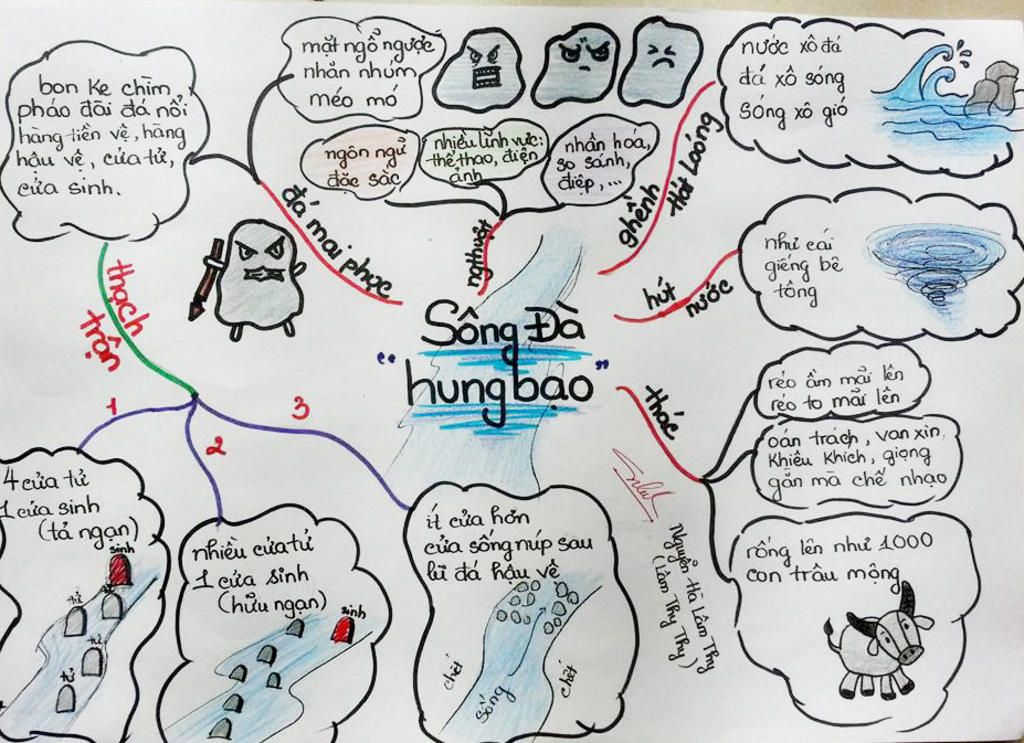 bon ke chìm
pháo đài đá nổi
hàng tiền vệ, hàng
hậu vệ, cửa tử,
cửa sinh.
mặt ngổ ngược
nhăn nhúm
méo mó
ngôn ngữ
đặc sắc
nhiều lĩnh vực:
thể thao, điện
ảnh
nhân hoá,
so sánh,
điệp,...
nước xô đá
đá xô sóng
sóng xô gió
đá mai phục
ngthuật
ghềnh
Hát Loóng
như cái
giếng bê
tông
hút
nước
thạch
trận
Sông Đà
"hung bạo"
thác
réo ầm mãi lên
réo to mãi lên
oán trách, van xin,
khiêu khích, giọng
gằn mà chế nhạo
rống lên như 1000
con trâu mộng
1
2
3
4 cửa tử
1 cửa sinh
(tả ngạn)
sinh
tử
tử
tử
nhiều cửa tử
1 cửa sinh
(hữu ngạn)
sinh
ít cửa hơn
cửa sống núp sau
lũ đá hậu vệ
chết
sống
chết
Nguyễn Hà Lâm Thy
(Lâm Thy Thy)